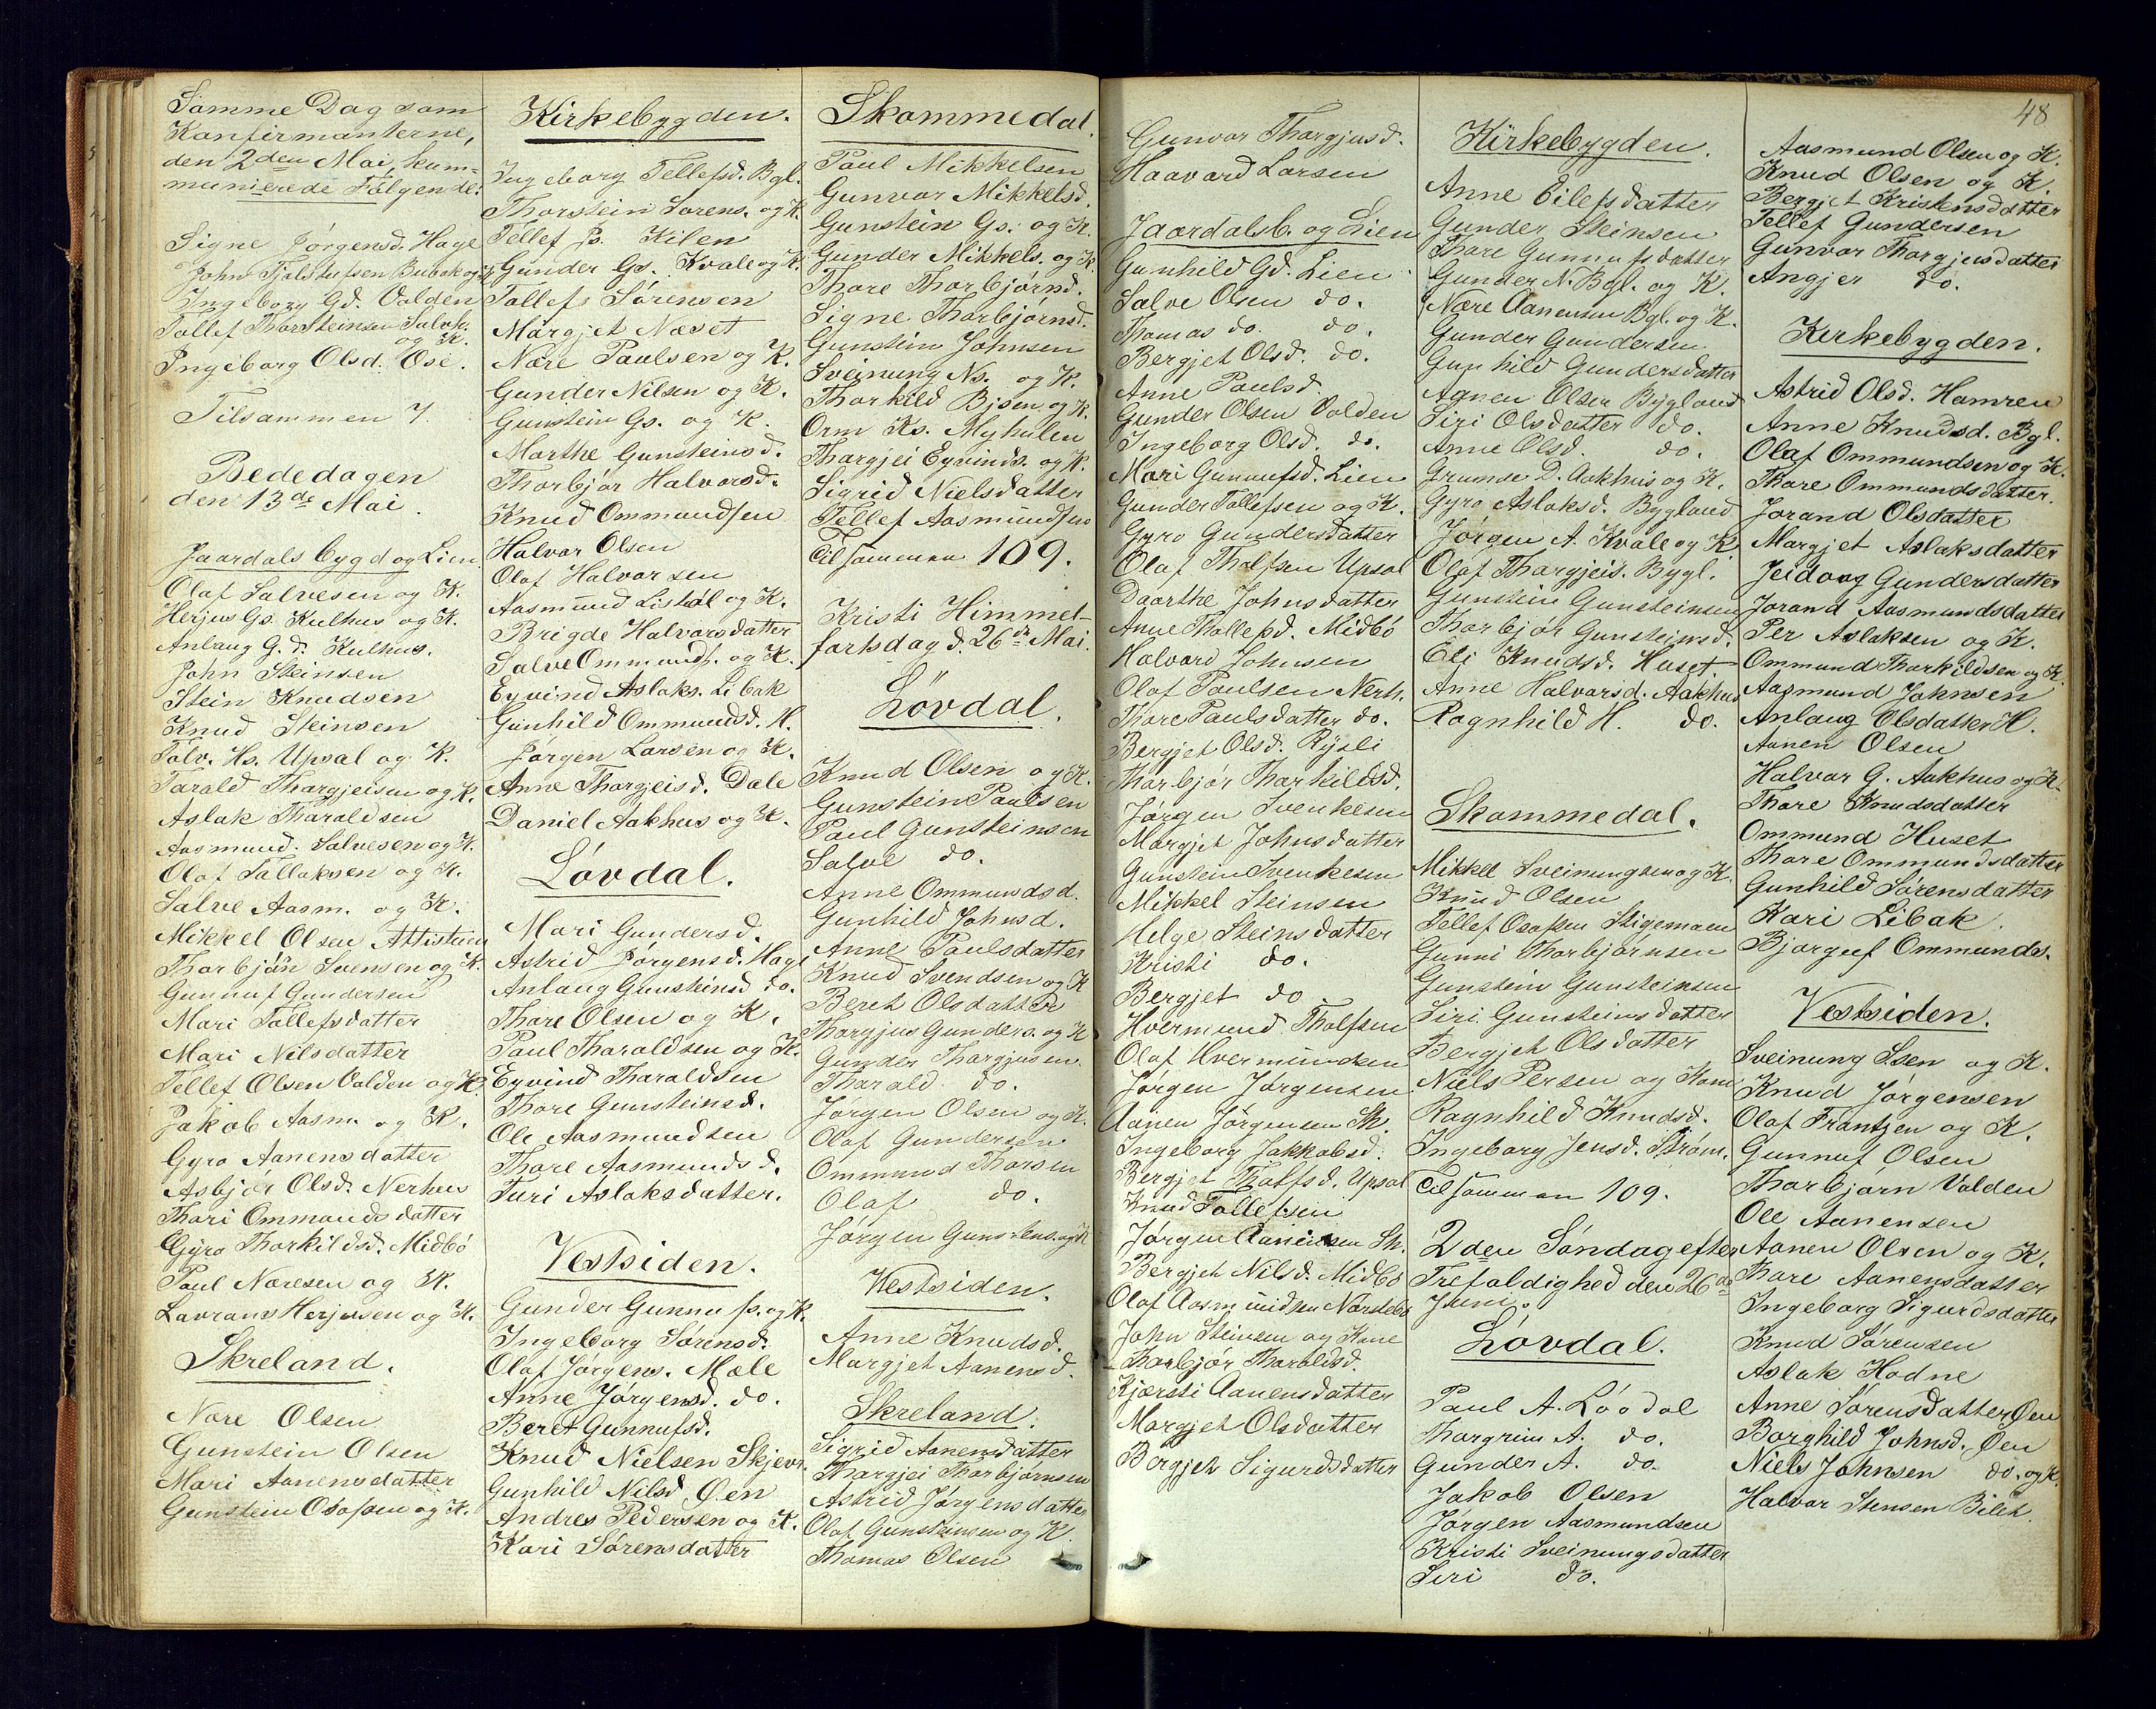 Samme Dag som
Konfirmanterne,
den 2den Mai, kom-
munierede Følgende:
Signe Jørgensd. Hage
John Tjøldulfsen Bubak og K
Ingeborg Gd. Valden
Tollef Thorsteinsen Salvk.
og K.
Ingeborg Olsd. Ose.
Tilsammen 7.
Bededagen
den 13de Mai.
Jaardalsbygd og Lien
Olaf Salvesen og K.
Herjus Gs. Kulhus og K.
Anlaug G.d. Kulhus.
John Steinsen
Stein Knudsen
Knud Steinsen
Tolv. Hs. Upsal og K.
Tarald Thargjeisen og K.
Aslak Tharaldsen
Aasmund. Salvesen og K.
Olaf Tallaksen og K.
Salve Aasm. og K.
Mikkel Olsen Attistuen
Thorbjørn Svensen og K.
Gunnuf Gundersen
Mari Tollefsdatter
Mari Nilsdatter
Tellef Olsen Valden og K.
Jakob Aasm. og K.
Gyro Aanensdatter
Asbjør Olsd. Nerhus
Thori Ommundsdatter
Gyro Thorkildsd. Midbø
Paul Noresen og K.
Lavrans Herjusen og K.
Skreland.
Nore Olsen
Gunstein Olsen
Mari Aanensdatter
Gunstein Osofsen og K.
Kirkebygden.
Ingeborg Tellefsd. Bgl.
Thorstein Sørens. og K.
Tellef Js. Kilen
Gunder Gs. Kvale og K.
Tollef Sørensen
Margjet Næset
Nore Paulsen og K.
Gunder Nilsen og K.
Gunstein Gs. og K.
Marthe Gunsteinsd.
Thorbjør Halvorsd.
Knud Ommundsen
Halvor Olsen
Olaf Halvorsen
Aasmund Lisløl og K.
Brigde Halvorsdatter
Salve Ommunds. og K.
Eyvind Aslaks. Libak
Gunhild Ommundsd. H.
Jørgen Larsen og K.
Anne Thargjeisd. Dale
Daniel Aakhus og K.
Løvdal.
Mari Gundersd.
Astrid Jørgensd. Hage
Anlaug Gunsteinsd do.
Thore Olsen og K.
Paul Tharaldsen og K.
Eyvind Tharaldsen
Thore Gunsteinsd.
Ole Aasmundsen
Thore Aasmundsd.
Turi Aslaksdatter.
Vestsiden.
Gunder Gunnufs. og K.
Ingeborg Sørensd.
Olaf Jørgens. Mæle
Anne Jørgensd. do.
Beret Gunnufsd.
Knud Nielsen Skjevr.
Gunhild Nilsd Øen
Andres Pedersen og K.
Kari Sørensdatter
Skommedal.
Paul Mikkelsen
Gunvor Mikkelsd.
Gunstein Gs. og K.
Gunder Mikkels. og K.
Thore Thorbjørnd.
Signe Thorbjørnsd.
Gunstein Johnsen
Sveinung Ns. og K.
Thorkild Bjsen og K.
Orm Ks. Myhulen
Thorgjei Eyvinds. og K.
Sigrid Nielsdatter
Tellef Aasmundsen
Tilsammen 109.
Kristi Himmel-
fartsdag d. 26de Mai.
Løvdal.
Knud Olsen og K.
Gunstein Paulsen
Paul Gunsteinsen
Salve do.
Anne Ommundsd.
Gunhild Johnsd.
Anne Paulsdatter
Knud Svendsen og K
Beret Olsdatter
Thorgjus Gunders. og K
Gunder Thorgjusen.
Tharald do.
Jørgen Olsen og K.
Olaf Gundersen
Ommund Thorsen
Olaf do.
Jørgen Gunstens. og K
Vestsiden.
Anne Knudsd.
Margjet Aanensd.
Skreland.
Sigrid Aanensdatter
Thorgjei Thorbjørnsen
Astrid Jørgensdatter
Olaf Gunsteinsen og K.
Thomas Olsen
48
Gunvor Thorgjusd.
Haavard Larsen
Jaardalsb. og Lien
Gunhild Gd. Lien
Salve Olsen do.
Thomas do. do.
Bergjet Olsd. do.
Anne Paulsd.
Gunder Olsen Valden
Ingeborg Olsd. do.
Mari Gunnufsd. Lien
Gunder Tollefsen og K.
Gyro Gundersdatter
Olaf Tholfsen Upsal
Daarthe Johnsdatter
Anne Thollefsd. Midbø
Halvard Johnsen
Olaf Paulsen Nerh.
Thore Paulsdatter do.
Bergjet Olsd. Rysli
Thorbjør Thorkildsd.
Jørgen Svenkesen
Margjet Johnsdatter
Gunstein Svenkesen
Mikkel Steinsen
Helge Steinsdatter
Kristi do.
Bergjet do
Hvermund Tholfsen
Olaf Hvermundsen
Jørgen Jørgensen
Aanen Jørgensen Sk.
Ingeborg Jakkobsd.
Bergjet Tholfsd. Upsal
Knud Tollefsen
Jørgen Aanensen Sk.
Bergjet Nilsd. Midbø
Olaf Aasmundsen Norstebø
John Steinsen og Kone
Thorbjør Tharaldsd.
Kjersti Aanensdatter
Margjet Olsdatter
Bergjet Sigurdsdatter
Kirkebygden.
Anne Eilefsdatter
Gunder Steinsen
Thore Gunnufsdatter
Gunder N. Bgl. og K.
Nore Aanensen Bgl. og K.
Gunder Gundersen
Gunhild Gundersdatter
Agnen Olsen Bygland
Siri Olsdatter do.
Anne Olsd. do.
Grunde D. Aakhus og K.
Gyro Aslaksd. Bygland
Jørgen A. Kvale og K
Olaf Thorgjeis. Bygl.
Gunstein Gunsteinsen
Thorbjør Gunsteinsd.
Eli Knudsd. Huset
Anne Halvorsd. Aakhus
Ragnhild H. do.
Skommedal.
Mikkel Sveinungsen og K.
Knud Olsen
Tellef Osofsen Stigemoen
Gunni Thorbjørnsen
Gunstein Gunsteinsen
Siri Gunsteinsdatter
Bergjet Olsdatter
Niels Persen og Kone
Ragnhild Knudsd.
Ingeborg Jensd. Strøm.
Tilsammen 109.
2den Søndag efter
Trefoldighed den 26de
Juni.
Løvdal.
Paul A. Lôvdal
Thorgrim A. do.
Gunder A. do.
Jakob Olsen
Jørgen Aasmundsen
Kristi Sveinungsdatter
Siri do.
Aasmund Olsen og K.
Knud Olsen og K.
Bergjet Kristensdatter
Tellef Gundersen
Gunvor Thorgjusdatter
Angjer do.
Kirkebygden.
Astrid Olsd. Hamren
Anne Knudsd. Bgl.
Olaf Ommundsen og K.
Thore Ommundsdatter.
Jorand Olsdatter
Margjet Aslaksdatter
Jeidaug Gundersdatter
Jorand Aasmundsdatter
Per Aslaksen og K.
Ommund Thorkildsen og K.
Aasmund Johnsen
Anlaug Olsdatter H.
Aanen Olsen
Halvor G. Aakhus og K.
Thore Knudsdatter
Ommund Huset
Thore Ommundsdatter
Gunhild Sørensdatter
Kari Libak.
Bjorguf Ommunds.
Vestsiden.
Sveinung Ssen og K.
Knud Jørgensen
Olaf Frantzen og K.
Gunnuf Olsen
Thorbjørn Valden
Ole Aanensen
Aanen Olsen og K.
Thore Aanensdatter
Ingeborg Sigurdsdatter
Knud Sørensen
Aslak Hodne
Anne Sørensdatter Øen
Borghild Johnsd. Øen
Niels Johnsen do. og K.
Halvor Stensen Bileh.